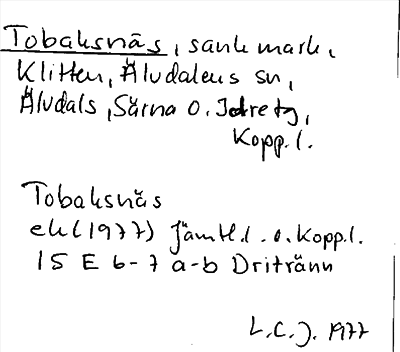 Tobaksnäs, sank mark,
Klitten, Älvdalens sn,
Älvdals, Särna o. Idre tg,
Kopp. l.
Tobaksnäs
ek (1977) Jämtl. l. o. Kopp. l.
15 E 6-7 a-b Dritränn
L.C.J. 1977